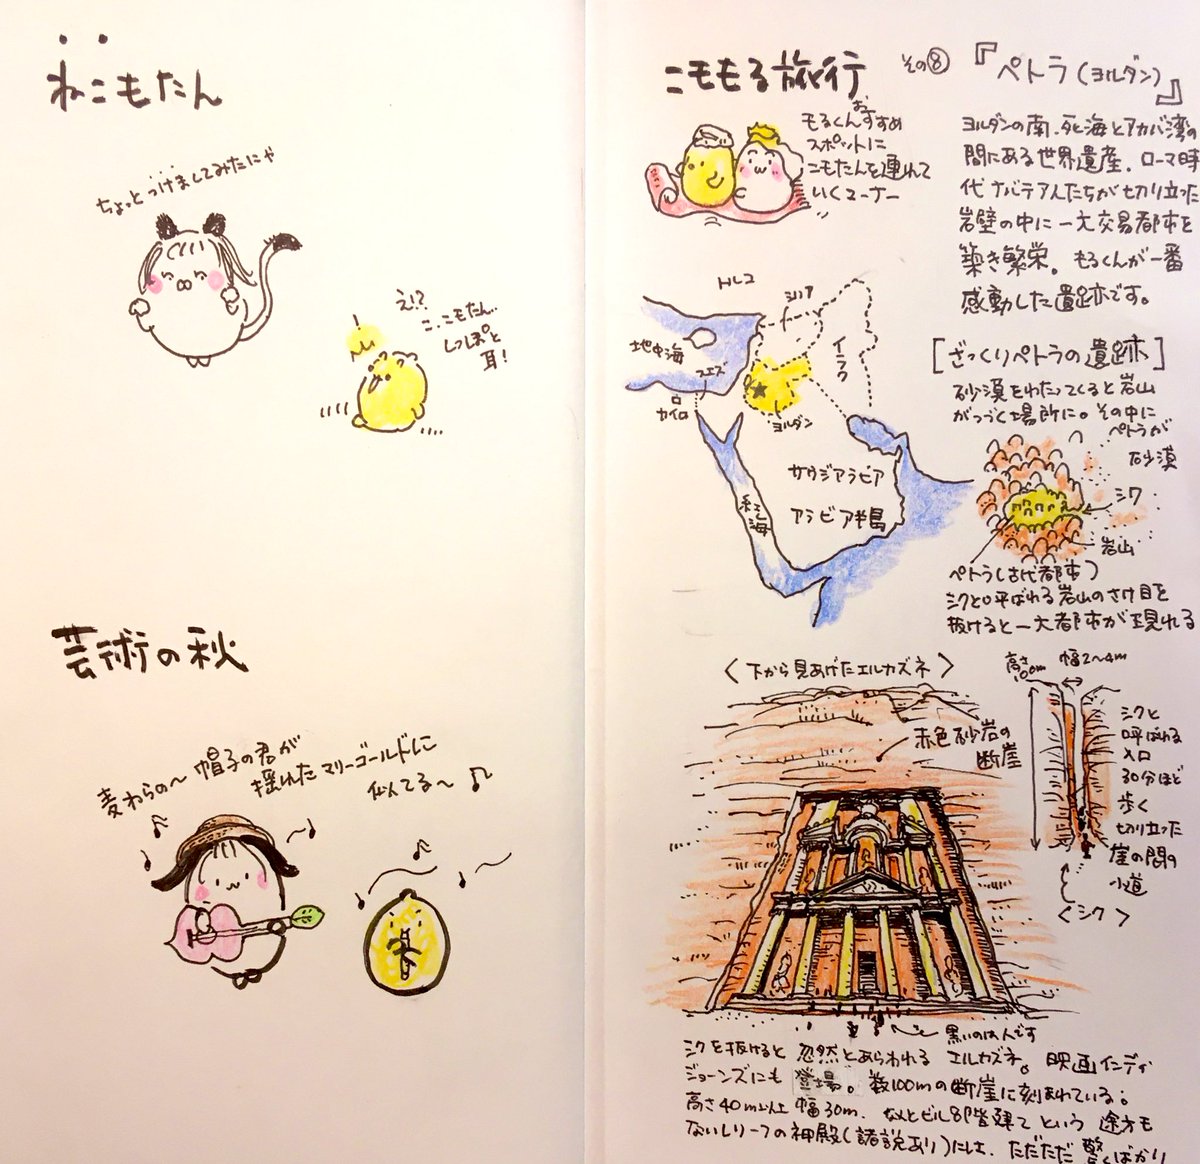 ねこもたん
ちょっとつけましてみたにゃ
え!?
こ、こもたん、
しっぽと
耳!
芸術の秋
麦わらの〜帽子の君が
揺れたマリーゴールドに
似てる〜♪
こももる旅行 その⑧ 『ペトラ(ヨルダン)』
もるくんおすすめ
スポットに
こもたんを連れて
いくコーナー
ヨルダンの南、死海とアカバ湾の
間にある世界遺産。ローマ時
代ナバテア人たちが切り立った
岩壁の中に一大交易都市を
築き繁栄。もるくんが一番
感動した遺跡です。
トルコ
シリア
イラク
地中海
スエズ
カイロ
ヨルダン
サウジアラビア
紅海
アラビア半島
[ざっくりペトラの遺跡]
砂漠をわたってくると岩山
がつづく場所に。その中に
ペトラが
砂漠
シク
岩山
ペトラ(古代都市)
シクと呼ばれる岩山のさけ目を
抜けると一大都市が現れる
〈下から見あげたエルカズネ〉
赤色砂岩の
断崖
高さ
100m
幅2〜4m
シクと
呼ばれる
入口
30分ほど
歩く
切り立った
崖の間の
小道
〈シク〉
黒いのは人です
シクを抜けると忽然とあらわれるエルカズネ。映画インディ
ジョーンズにも登場。数100mの断崖に刻まれている。
高さ40m以上幅30m、なんとビル8階建てという途方も
ないレリーフの神殿(諸説あり)には、ただただ驚くばかり